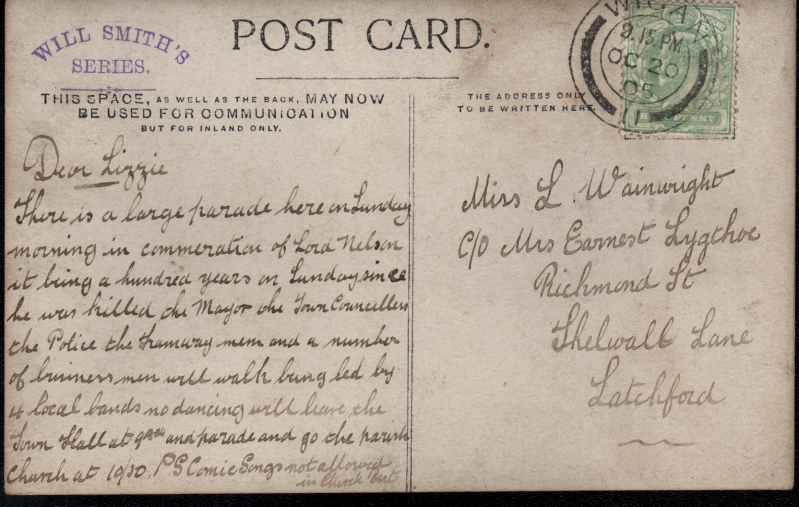 WILL SMITH'S
SERIES.
POST CARD.
THIS SPACE, AS WELL AS THE BACK, MAY NOW
BE USED FOR COMMUNICATION
BUT FOR INLAND ONLY.
THE ADDRESS ONLY
TO BE WRITTEN HERE.
WIGAN
9.15 PM
OC 20
05
11
Dear Lizzie
There is a large parade here on Sunday
morning in commeration of Lord Nelson
it being a hundred years on Sunday since
he was killed the Mayor the Town Councellers
the Police the Tramway men and a number
of business men will walk being led by
4 local bands no dancing will leave the
Town Hall at and parade and go the parish
Church at PS Comic Songs not allowed
in Church
Miss L. Wainwright
C/O Mrs Earnest Lygthoe
Richmond St
Thelwall Lane
Latchford